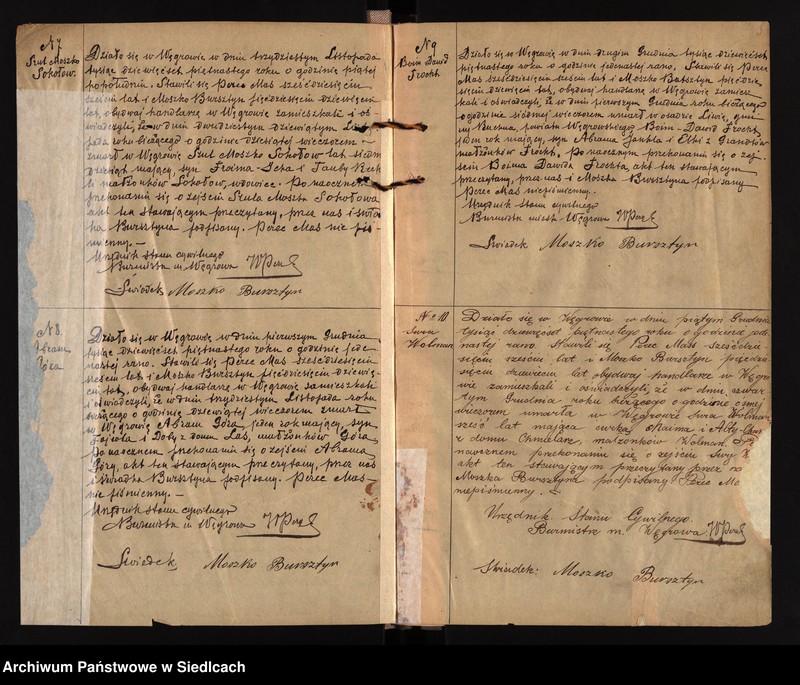 N 7
Szul Moszko
Sokołow.
Działo się w Węgrowie w dniu trzydziestym Listopada
tysiąc dziewięćset piętnastego roku o godzinie piątej
popołudniu. Stawili się Perec Mas sześćdziesięciu
sześciu lat i Moszko Bursztyn pięćdziesięciu dziewięciu
lat, obydwaj handlarze w Węgrowie zamieszkali i oś-
wiadczyli, że w dniu dwudziestym dziewiątym Listo-
pada roku bieżącego o godzinie dziesiątej wieczorem
zmarł w Węgrowie Szul Moszko Sokołow lat siedm-
dziesiąt mający, syn
małżonków Sokołow, wdowiec. Po naocznem
przekonaniu się o zejściu Szula Moszka Sokołowa
akt ten stawającym przeczytany, przez nas i świad-
ka Bursztyna podpisany. Perec Mas nie piś-
mienny.
Urzędnik stanu cywilnego
Burmistrz m Węgrowa
Świadek Moszko Bursztyn
N 8.
Abram
Góra
Działo się w Węgrowie w dniu pierwszym Grudnia
tysiąc dziewięćset piętnastego roku o godzinie jede-
nastej rano. Stawili się Perec Mas sześćdziesięciu
sześciu lat i Moszko Bursztyn pięćdziesięciu dziewię-
ciu lat, obydwaj handlarze w Węgrowie zamieszkali
i oświadczyli, że w dniu trzydziestym Listopada roku
bieżącego o godzinie dziewiątej wieczorem zmarł
w Węgrowie Abram Góra, jeden rok mający, syn
i Doby z domu Las, małżonków Góra.
Po naocznem przekonaniu się o zejściu Abrama
Góry, akt ten stawającym przeczytany, przez nas
i świadka Bursztyna podpisany. Perec Mas
nie piśmienny.
Urzędnik stanu cywilnego
Burmistrz m Węgrowa
Świadek Moszko Bursztyn
N 9
Boim Dawid
Frocht.
Działo się w Węgrowie w dniu drugim Grudnia tysiąc dziewięćset
piętnastego roku o godzinie jedenastej rano. Stawili się Perec
Mas sześćdziesięciu sześciu lat i Moszko Bursztyn pięćdzie-
sięciu dziewięciu lat, obydwaj handlarze w Węgrowie zamiesz-
kali i oświadczyli, że w dniu pierwszym Grudnia roku bieżącego
o godzinie siódmej wieczorem zmarł w osadzie Liwie, gmi-
ny Ruchna, powiatu Węgrowskiego Boim-Dawid Frocht,
jeden rok mający, syn Abrama Jankla i
małżonków Frocht. Po naocznym przekonaniu się o zej-
ściu Boima Dawida Frochta akt ten stawającym
przeczytany, przez nas i Moszka Bursztyna podpisany
Perec Mas niepiśmienny.
Urzędnik stanu cywilnego
Burmistrz miasta Węgrowa
Świadek Moszko Bursztyn
No 10
Swia
Wolman
Działo się w Węgrowie w dniu piątym Grudnia
tysiąc dziewięćset piętnastego roku o godzinie jede-
nastej rano. Stawili się Perec Mass sześćdzie-
sięciu sześciu lat i Moszko Bursztyn pięćdzie-
sięciu dziewięciu lat obydwaj handlarze w Węgro-
wie zamieszkali i oświadczyli, że w dniu czwar-
tym Grudnia roku bieżącego o godzinie ósmej
wieczorem umarła w Węgrowie Wolman
sześć lat mająca córka
z domu Chmielarz, małżonków Wolman. Po
naocznem przekonaniu się o zejściu
akt ten stawającym przeczytany przez
Moszka Bursztyna podpisany Perec
niepiśmienny.
Urzędnik Stanu Cywilnego.
Burmistrz m. Węgrowa
Świadek: Moszko Bursztyn
Archiwum Państwowe w Siedlcach